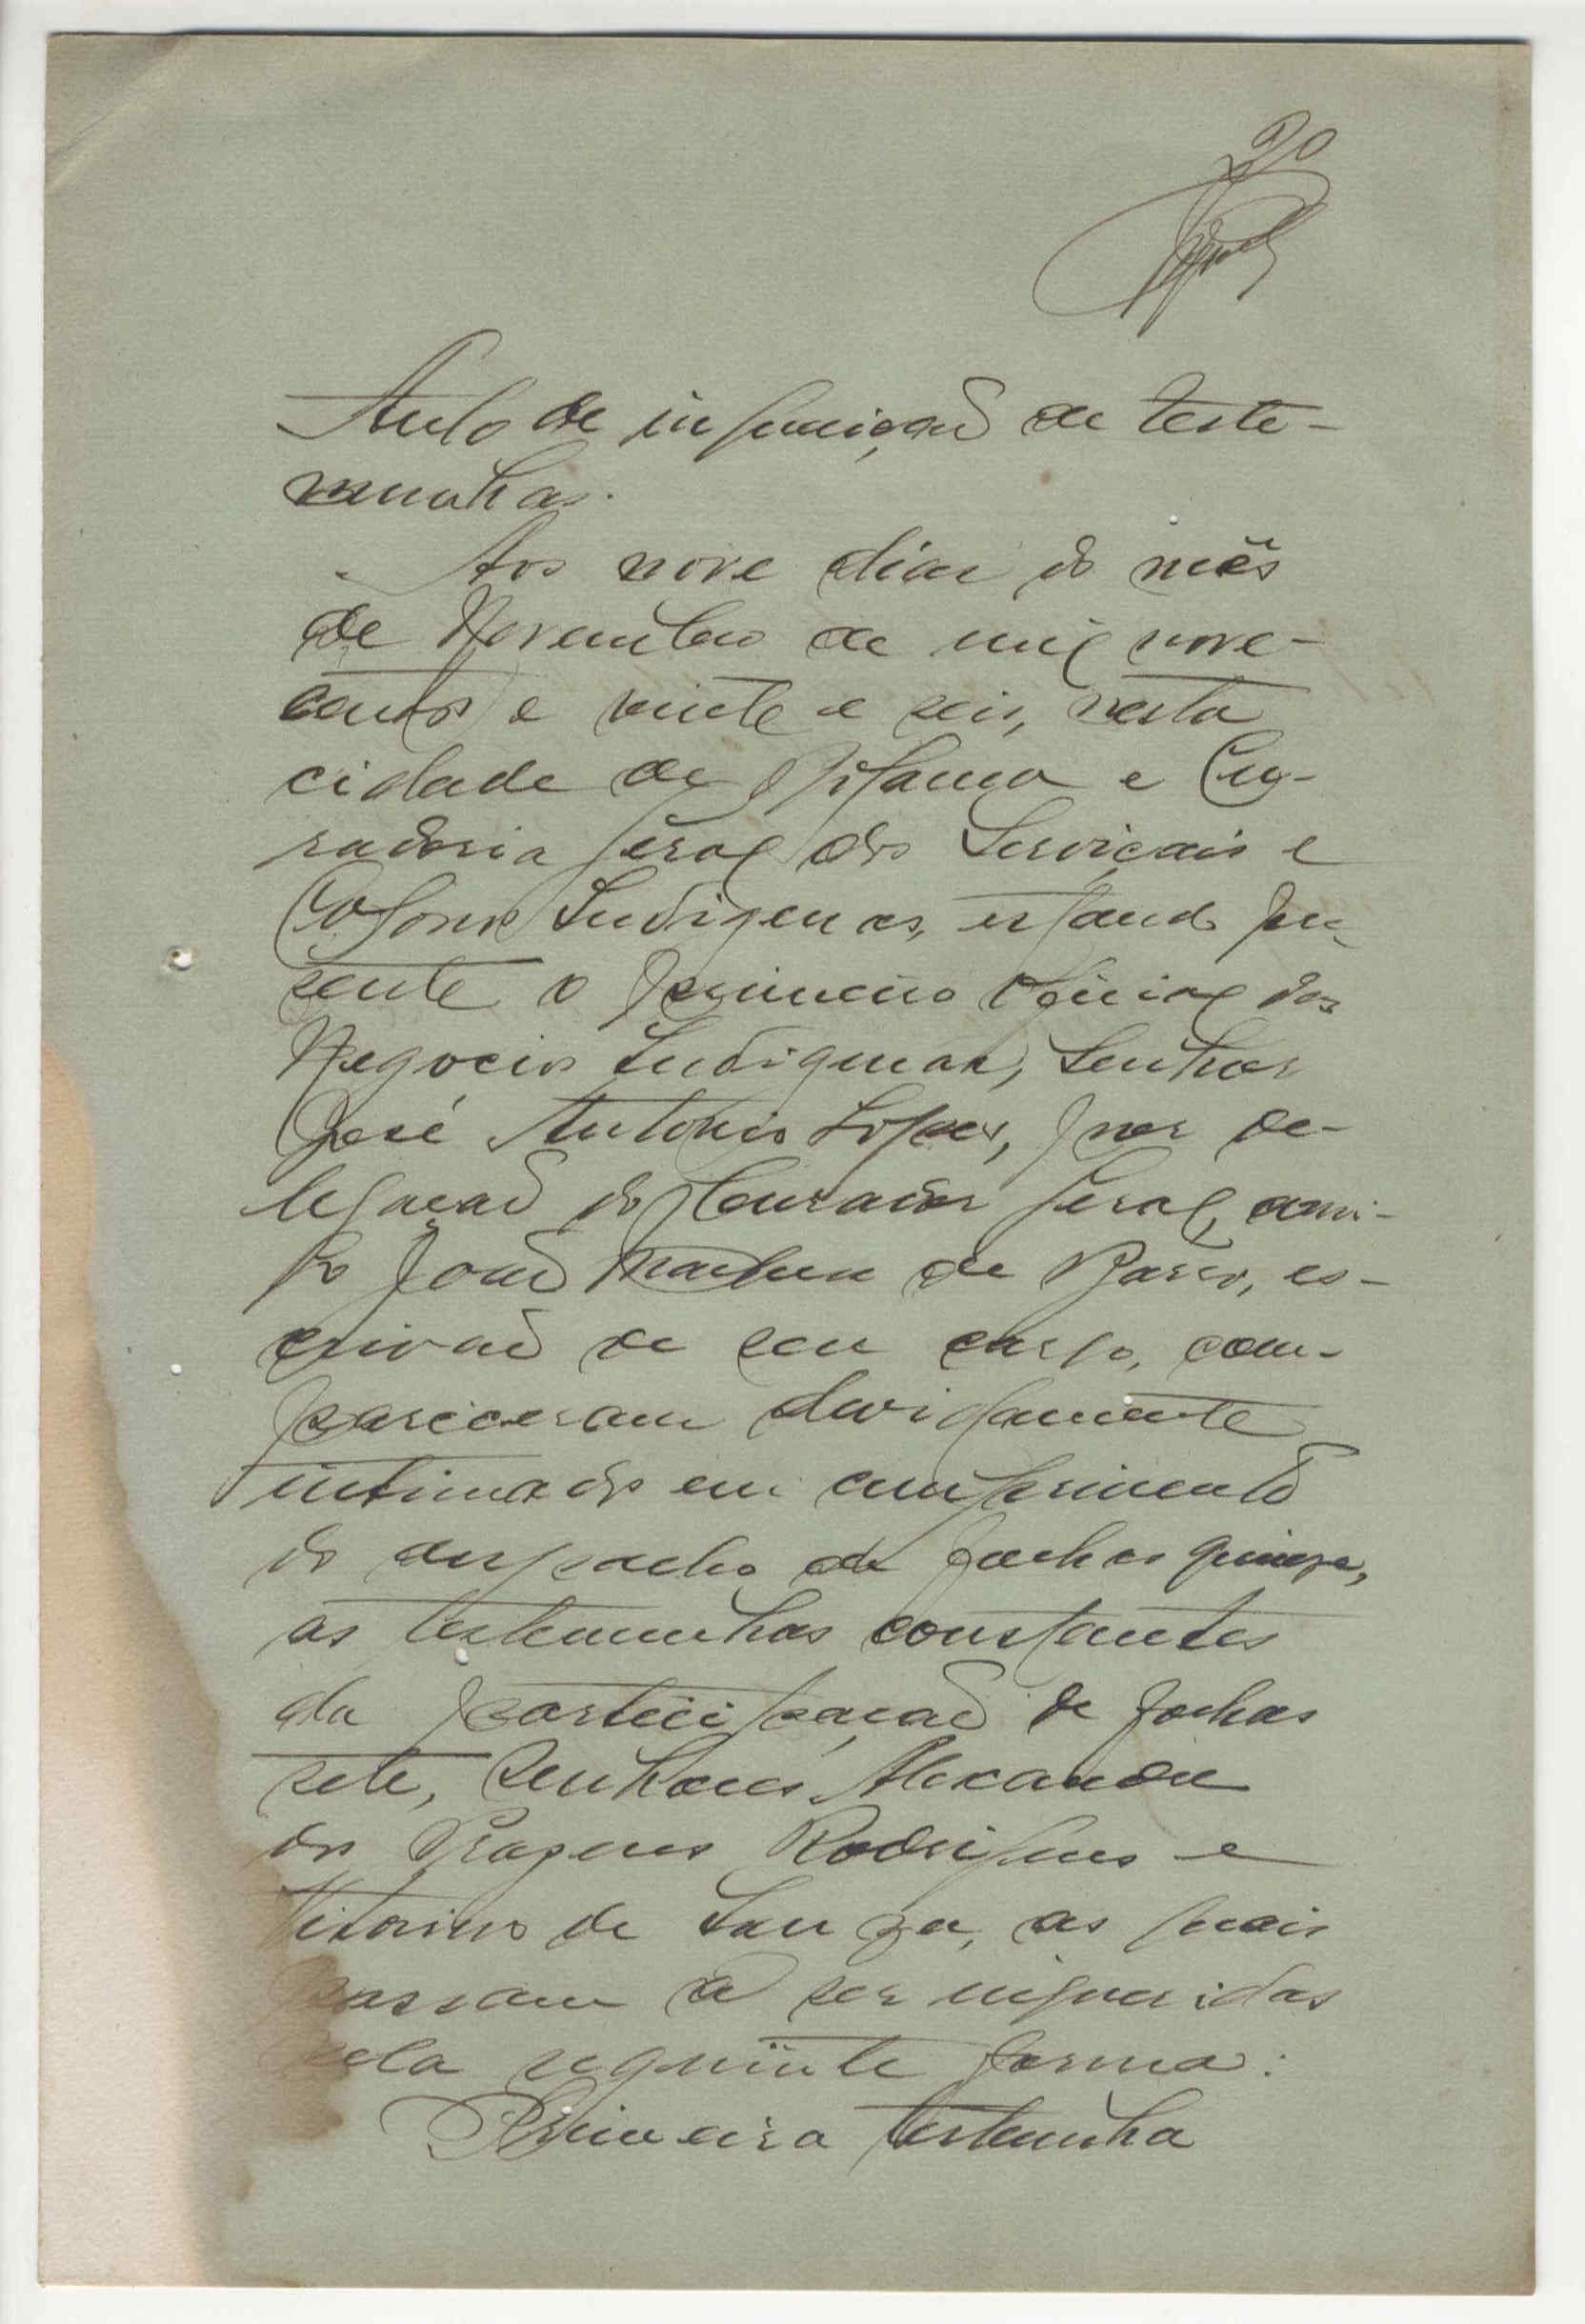 20
Auto de inquirição de teste-
munhas.
Aos nove dias do mês
de Novembro de mil nove-
centos e vinte e seis, nesta
cidade de e Cu-
radoria Geral dos Serviçais e
Colonos Indigenas, estando pre-
sente o primeiro oficial dos
Negocios Indigenas, Senhor
José Antonio Lopes, por de-
legação do Curador Geral, comi-
go João de Barros, es-
crivão de seu cargo, com-
pareceram devidamente
intimados em cumprimento
do despacho de folhas quinze,
as testemunhas constantes
da participação de folhas
sete, Senhores Alexandre
dos Prazeres Rodrigues e
Vitorino de Souza, as quais
passam a ser inqueridas
pela seguinte forma:
Primeira testemunha